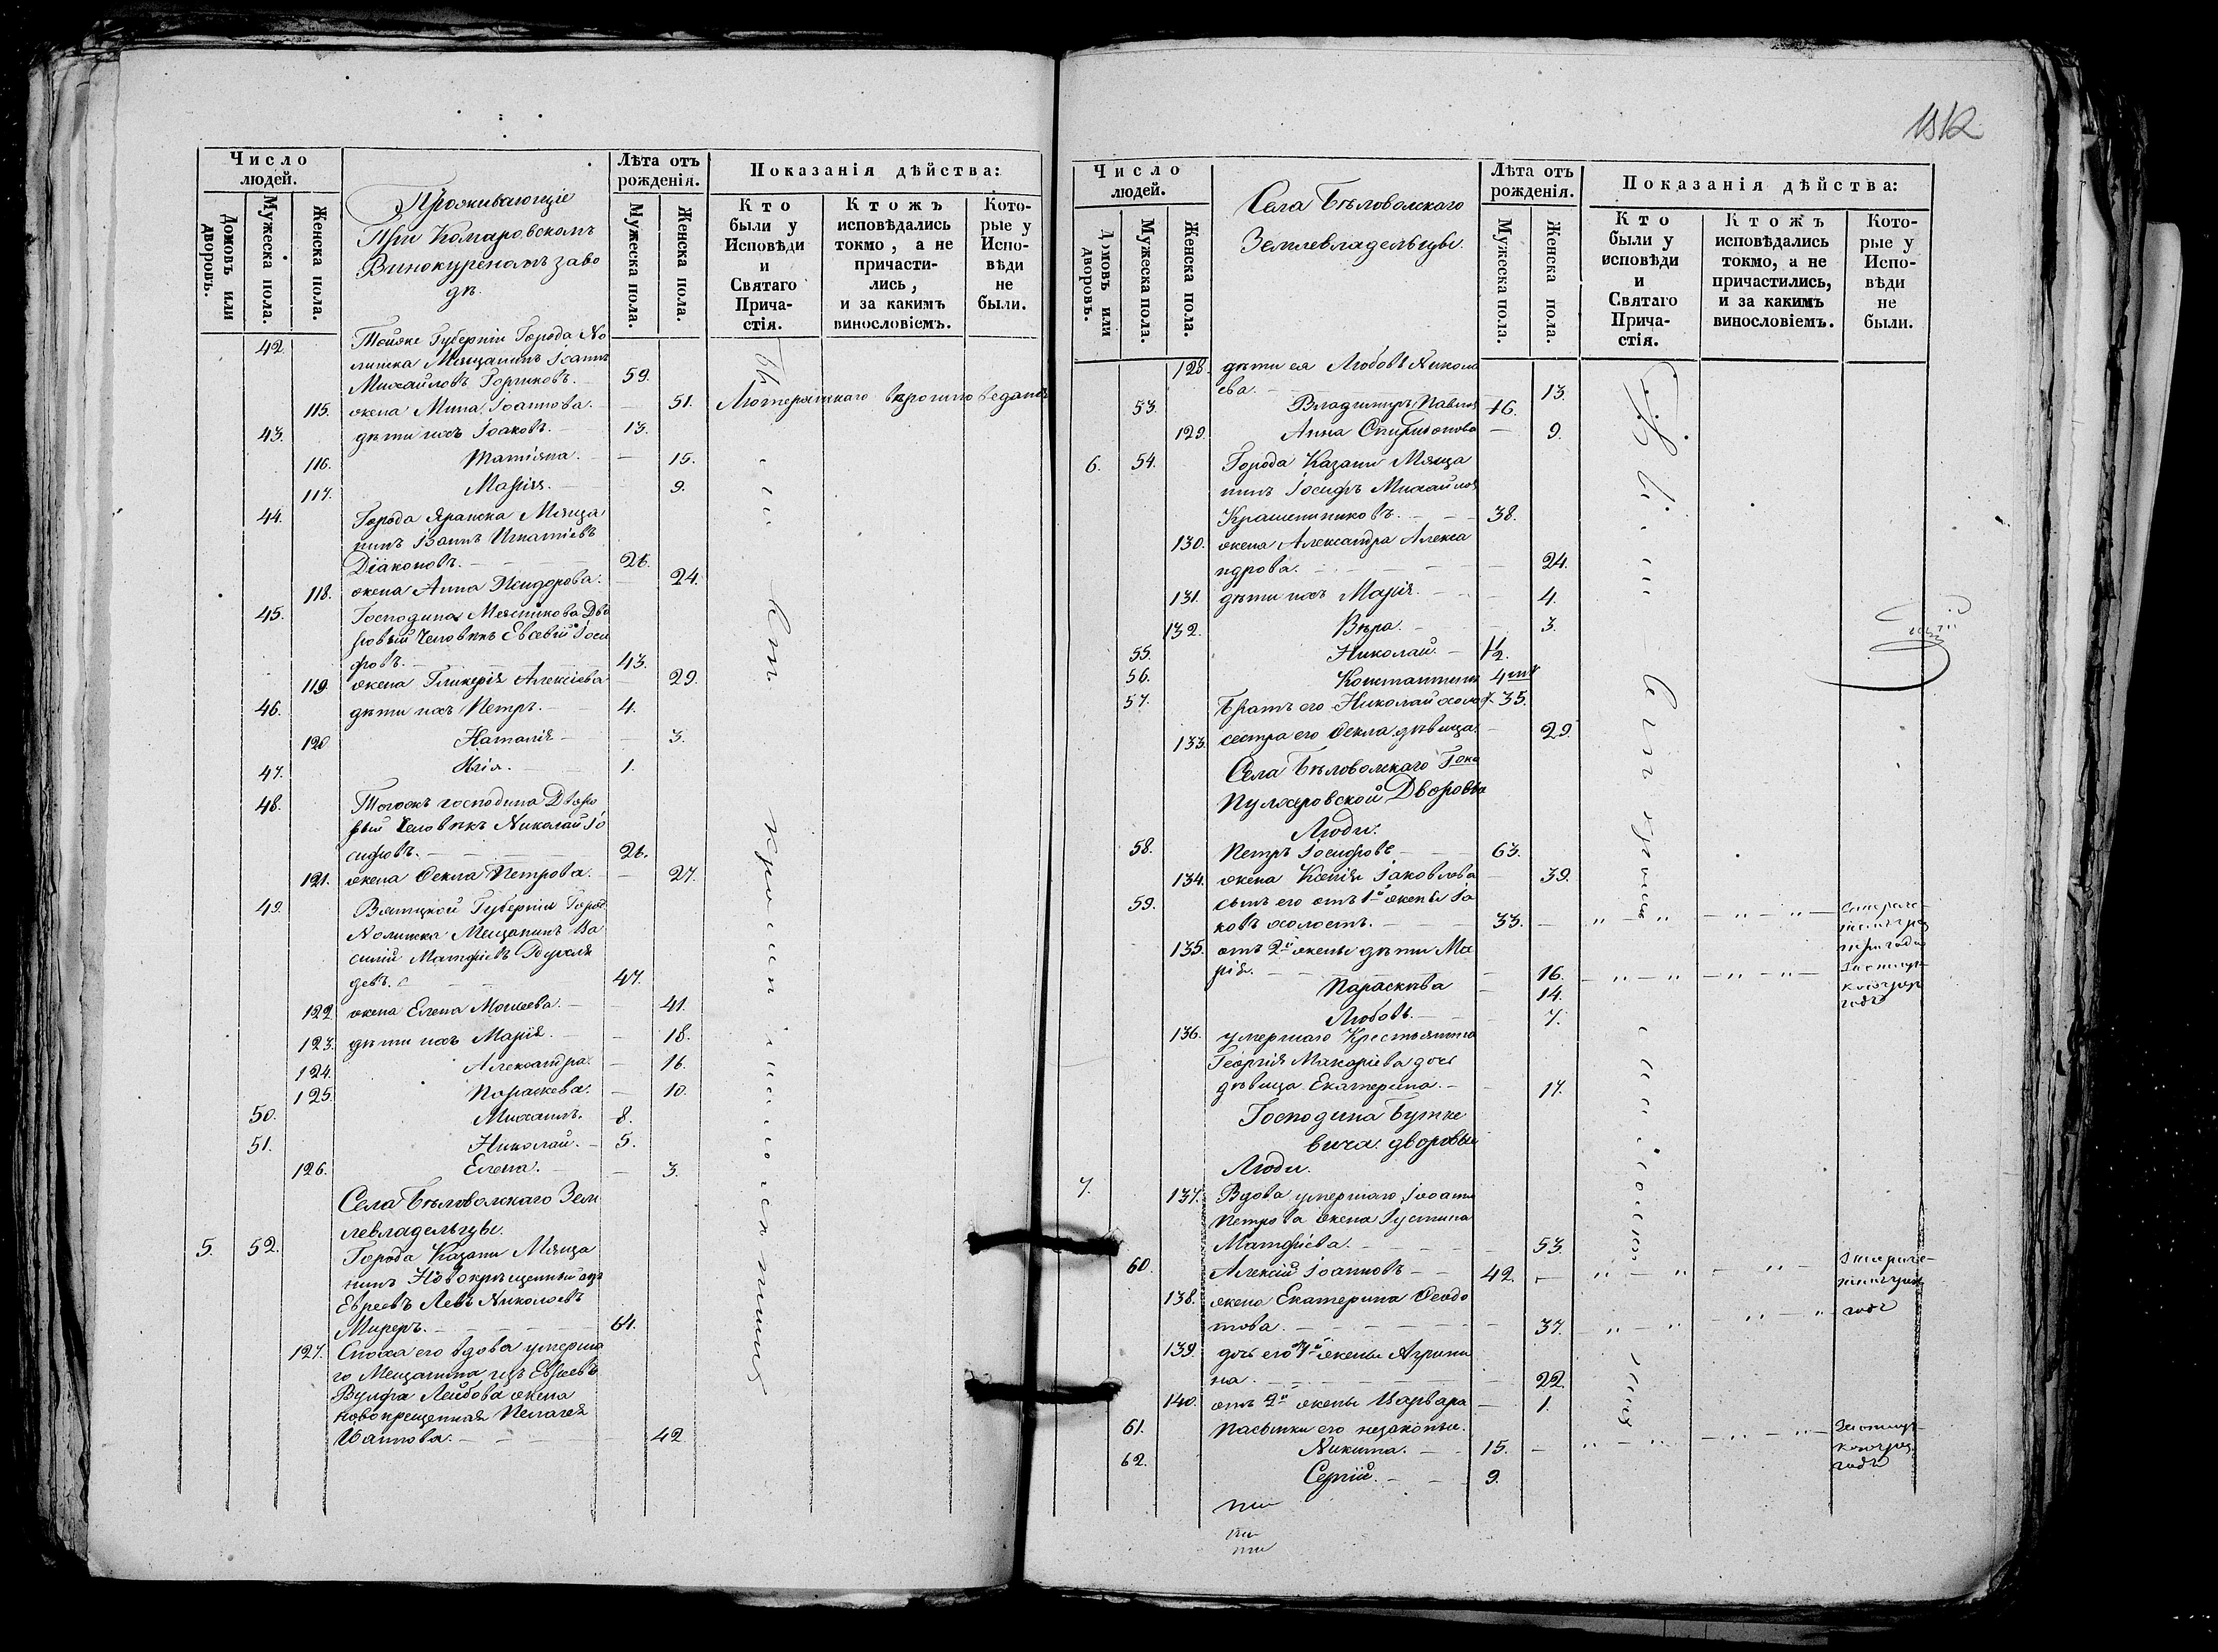 Число людей.
Домовъ или дворовъ.
Мужеска пола.
Женска пола.
Проживающіе
При Комаровскомъ
Винокуренномъ заво
дѣ.
Лѣта отъ рожденія.
Мужеска пола.
Женска пола.
Показанія дѣйства:
Кто были у Исповѣди и Святаго Прича-стія.
Ктожъ исповѣдались токмо, а не причасти-лись, и за какимъ винословіемъ.
Кото-рые у Испо-вѣди не были.
42. Тойже Губерніи Города Но
линска Мѣщанинъ Іоаннъ
Михайловъ 59.
115. жена Мина Іоаннова. 51. Лютеранскаго вѣроисповеданія
43. дѣти ихъ Іаковъ. 13.
116. Татіяна. 15.
117. Марія. 9.
44. Города Яранска Мѣща
нинъ Іоаннъ Игнатіевъ
Діаконовъ. 26.
118. жена Анна Исидорова. 24.
45. Господина Мясникова Дво
ровый Человѣкъ Евсевій Іоси
фовъ. 43.
119. жена Гликерія Алексіева 29.
46. дѣти ихъ Петръ. 4.
120 Наталія 3.
47. Илія. 1.
48. Тогожъ господина Дворо
вый Человѣкъ Николай Іо
сифовъ. 26.
121. жена Ѳекла Петрова. 27.
49. Вятской Губерніи Город
Нолинска Мещанинъ Ва
силій Матфіевъ
девъ. 47.
122 жена Елена Моисеева. 41.
123. дѣти ихъ Марія. 18.
124. Александра. 16.
125. Параскева. 10.
50. Михаилъ. 8.
51. Николай. 5.
126. Елена. 3.
Села Бѣловолжскаго Зем
левладельцы.
5. 52. Города Казани Мѣща
нинъ Новокрещенный изъ
Евреевъ Левъ Николаевъ
Миреръ. 64.
127. Сноха его вдова умерша
го Мещанина изъ Евреевъ
Вульфа Лейбова жена
новокрещенная Пелагея
Иванова. 42.
1312
Число людей.
Домовъ или дворовъ.
Мужеска пола.
Женска пола.
Села Бѣловолжскаго
Землевладельцы.
Лѣта отъ рожденія.
Мужеска пола.
Женска пола.
Показанія дѣйства:
Кто были у исповѣди и Святаго Прича-стія.
Ктожъ исповѣдались токмо, а не причастились, и за какимъ винословіемъ.
Кото-рые у Испо-вѣди не были.
128. дѣти ея Любовь Никола
ева. 13.
53. Владимиръ Павлов 16.
129. Анна Спиридонова 9.
6. 54. Города Казани Мѣща
нинъ Іосифъ Михайлов
Крашенинниковъ. 38.
130. жена Александра Алекса
ндрова. 24.
131. дѣти ихъ Марія. 4.
132. Вѣра. 3.
55. Николай. 1/2.
56. Константинъ
57. Братъ его Николай холос 35.
133. сестра его Ѳекла дѣвица. 29.
Села Бѣловолжскаго Гжи
Пулхеровской Дворовые
Люди.
58. Петръ Іосифовъ 63.
134. жена Ксенія Іаковлева 39.
59. сынъ его отъ 1й жены Іа
ковъ холостъ. 33.
135. отъ 2й жены дѣти Ма
рія. 16.
Параскѣва 14.
Любовь. 7.
136. умершаго Крестьянина
Георгія Макаріева дочь
дѣвица Екатерина. 17.
Господина Бутке
вича дворовые
Люди.
7. 137. Вдова умершаго Іоанна
Петрова жена Іустина
Матфіева. 53.
60. Алексій Іоанновъ 42.
138. жена Екатерина Ѳеодо
това. 37.
139. дочь его 1й жены Агрипи
на. 22
140. отъ 2й жены Варвара 1.
61. Пасынки его незаконные.
Никита. 15.
62. Сергій. 9.